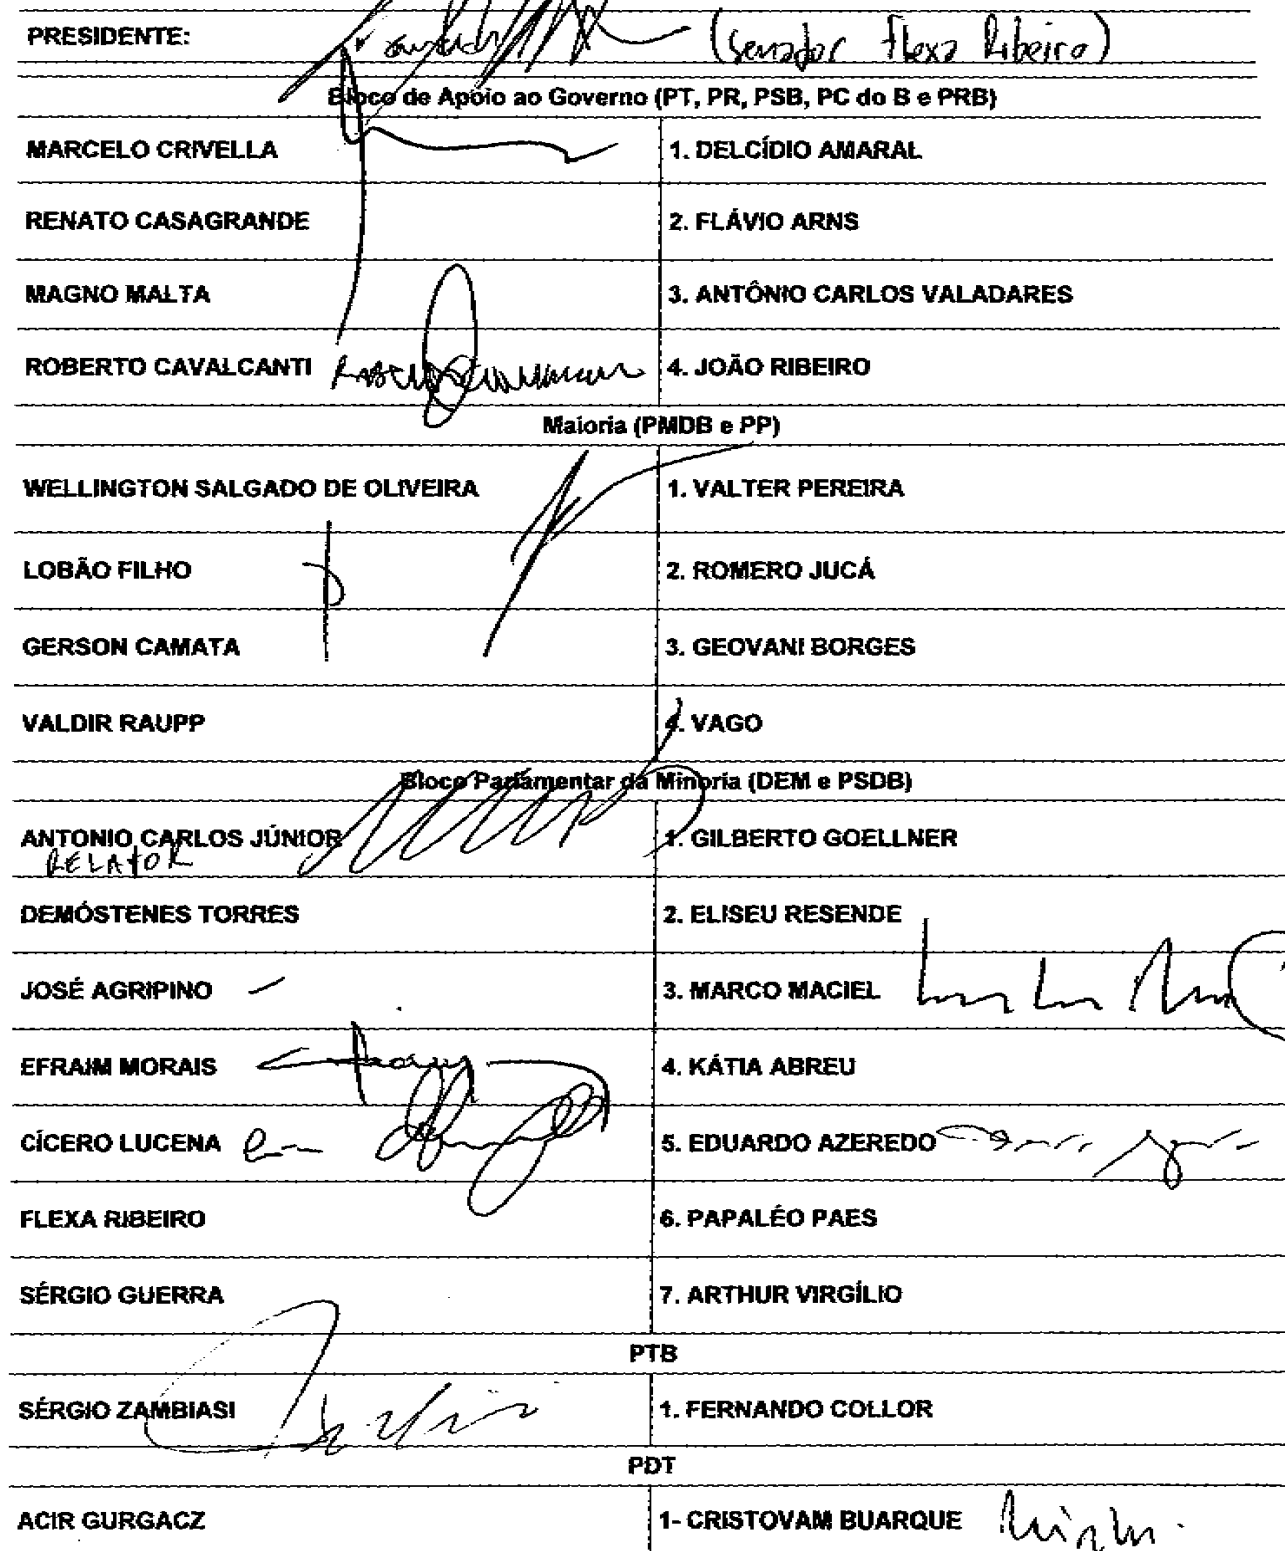 PRESIDENTE: (Senador Flexa Ribeiro)
Bloco de Apoio ao Governo (PT, PR, PSB, PC do B e PRB)
MARCELO CRIVELLA 1. DELCÍDIO AMARAL
RENATO CASAGRANDE 2. FLÁVIO ARNS
MAGNO MALTA 3. ANTÔNIO CARLOS VALADARES
ROBERTO CAVALCANTI 4. JOÃO RIBEIRO
Maioria (PMDB e PP)
WELLINGTON SALGADO DE OLIVEIRA 1. VALTER PEREIRA
LOBÃO FILHO 2. ROMERO JUCÁ
GERSON CAMATA 3. GEOVANI BORGES
VALDIR RAUPP 4. VAGO
Bloco Parlamentar da Minoria (DEM e PSDB)
ANTONIO CARLOS JÚNIOR 1. GILBERTO GOELLNER
RELATOR
DEMÓSTENES TORRES 2. ELISEU RESENDE
JOSÉ AGRIPINO 3. MARCO MACIEL
EFRAIM MORAIS 4. KÁTIA ABREU
CÍCERO LUCENA 5. EDUARDO AZEREDO
FLEXA RIBEIRO 6. PAPALÉO PAES
SÉRGIO GUERRA 7. ARTHUR VIRGÍLIO
PTB
SÉRGIO ZAMBIASI 1. FERNANDO COLLOR
PDT
ACIR GURGACZ 1- CRISTOVAM BUARQUE